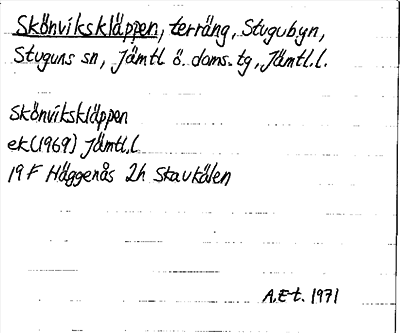 Skönvikskläppen, terräng, Stugubyn,
Stuguns sn, Jämtl ö. doms. tg, Jämtl.l.
Skönvikskläppen
ek(1969) Jämtl.l
19 F Häggenås 2h Stavkälen
A.Et. 1971